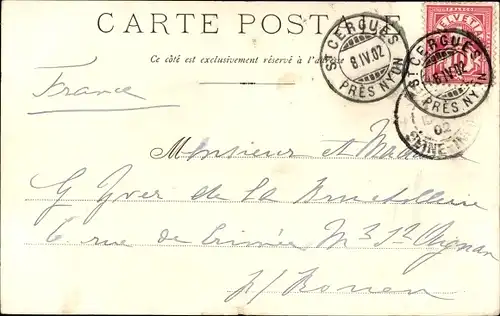 CARTE POSTALE
Ce côté est exclusivement réservé à l'adresse
ST CERGUES
8.IV.02
PRÈS NYON
FRANCO
HELVETIA
10
ST CERGUES
8.IV.02
PRÈS NYON
02
SEINE-IN
France
Monsieur et Madame
G Yver de la Bruchollerie
6 rue de Crimée Mt St Aignan
p/ Rouen